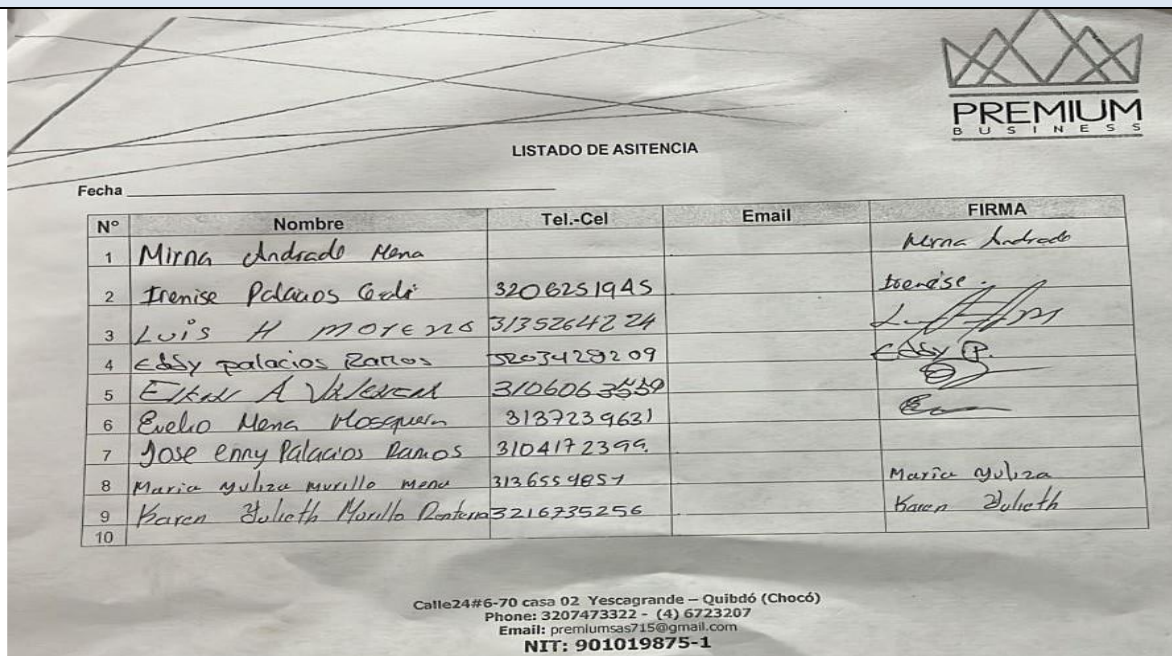 PREMIUM
BUSINESS
LISTADO DE ASITENCIA
Fecha
Nº Nombre Tel.-Cel Email FIRMA
1 Mirna Andrade Mena Mirna Andrade
2 Irenise Palacios 3206251945 Irenise.
3 Luis H moreno 3135264224
4 Eddy palacios Ramos 3203429209 Eddy P.
5 A 3106063539
6 Evelio Mena Mosquera 3137239631
7 Jose enny Palacios Ramos 3104172399.
8 Maria yuliza murillo mena 3136554857 Maria yuliza
9 Karen Yulieth Murillo 3216735256 Karen Yulieth
10
Calle24#6-70 casa 02 Yescagrande – Quibdó (Chocó)
Phone: 3207473322 - (4) 6723207
Email: premiumsas715@gmail.com
NIT: 901019875-1